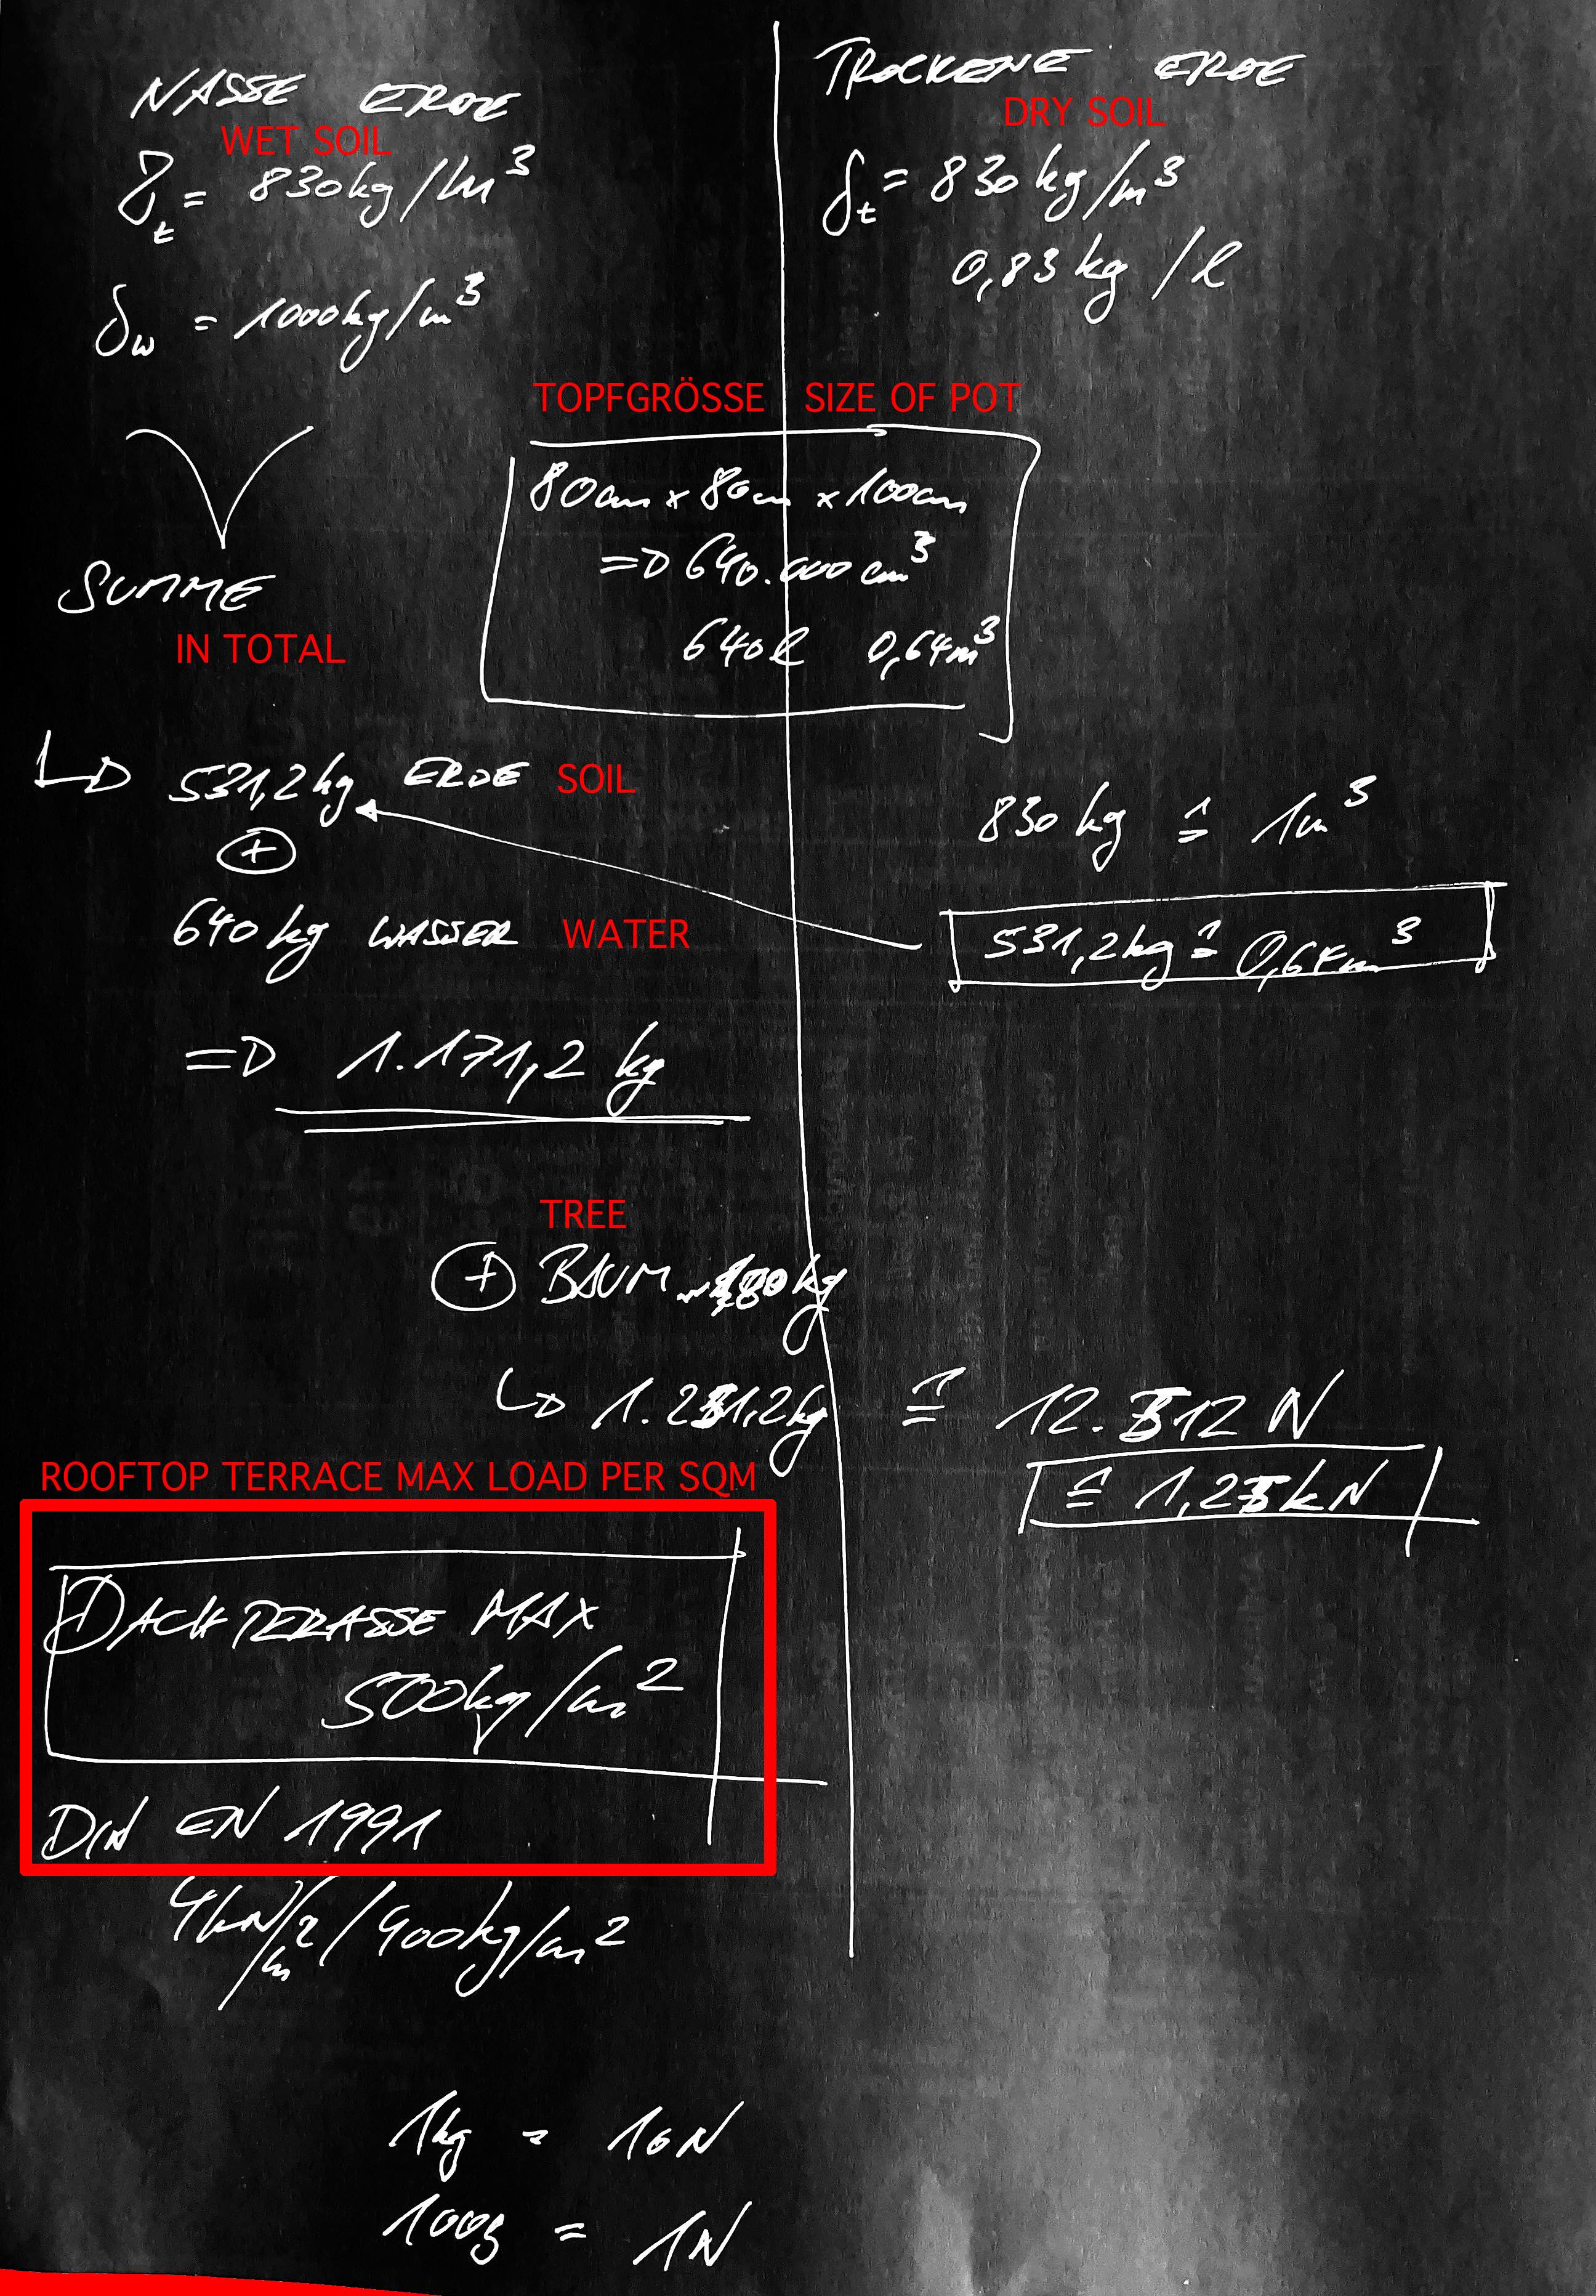 NASSE ERDE
WET SOIL
δt = 830kg/m³
δw = 1000kg/m³
TROCKENE ERDE
DRY SOIL
δt = 830kg/m³
0,83kg/l
TOPFGRÖSSE SIZE OF POT
80cm x 80cm x 100cm
=D 640.000cm³
640l 0,64m³
SUMME
IN TOTAL
531,2kg ERDE SOIL
+
640kg WASSER WATER
=D 1.171,2 kg
830kg ≙ 1m³
531,2kg ≙ 0,64m³
TREE
+ BAUM
≙
ROOFTOP TERRACE MAX LOAD PER SQM
DACHTERASSE MAX
500kg/m²
DIN EN 1991
4kN/m²/400kg/m²
1kg = 10N
100g = 1N